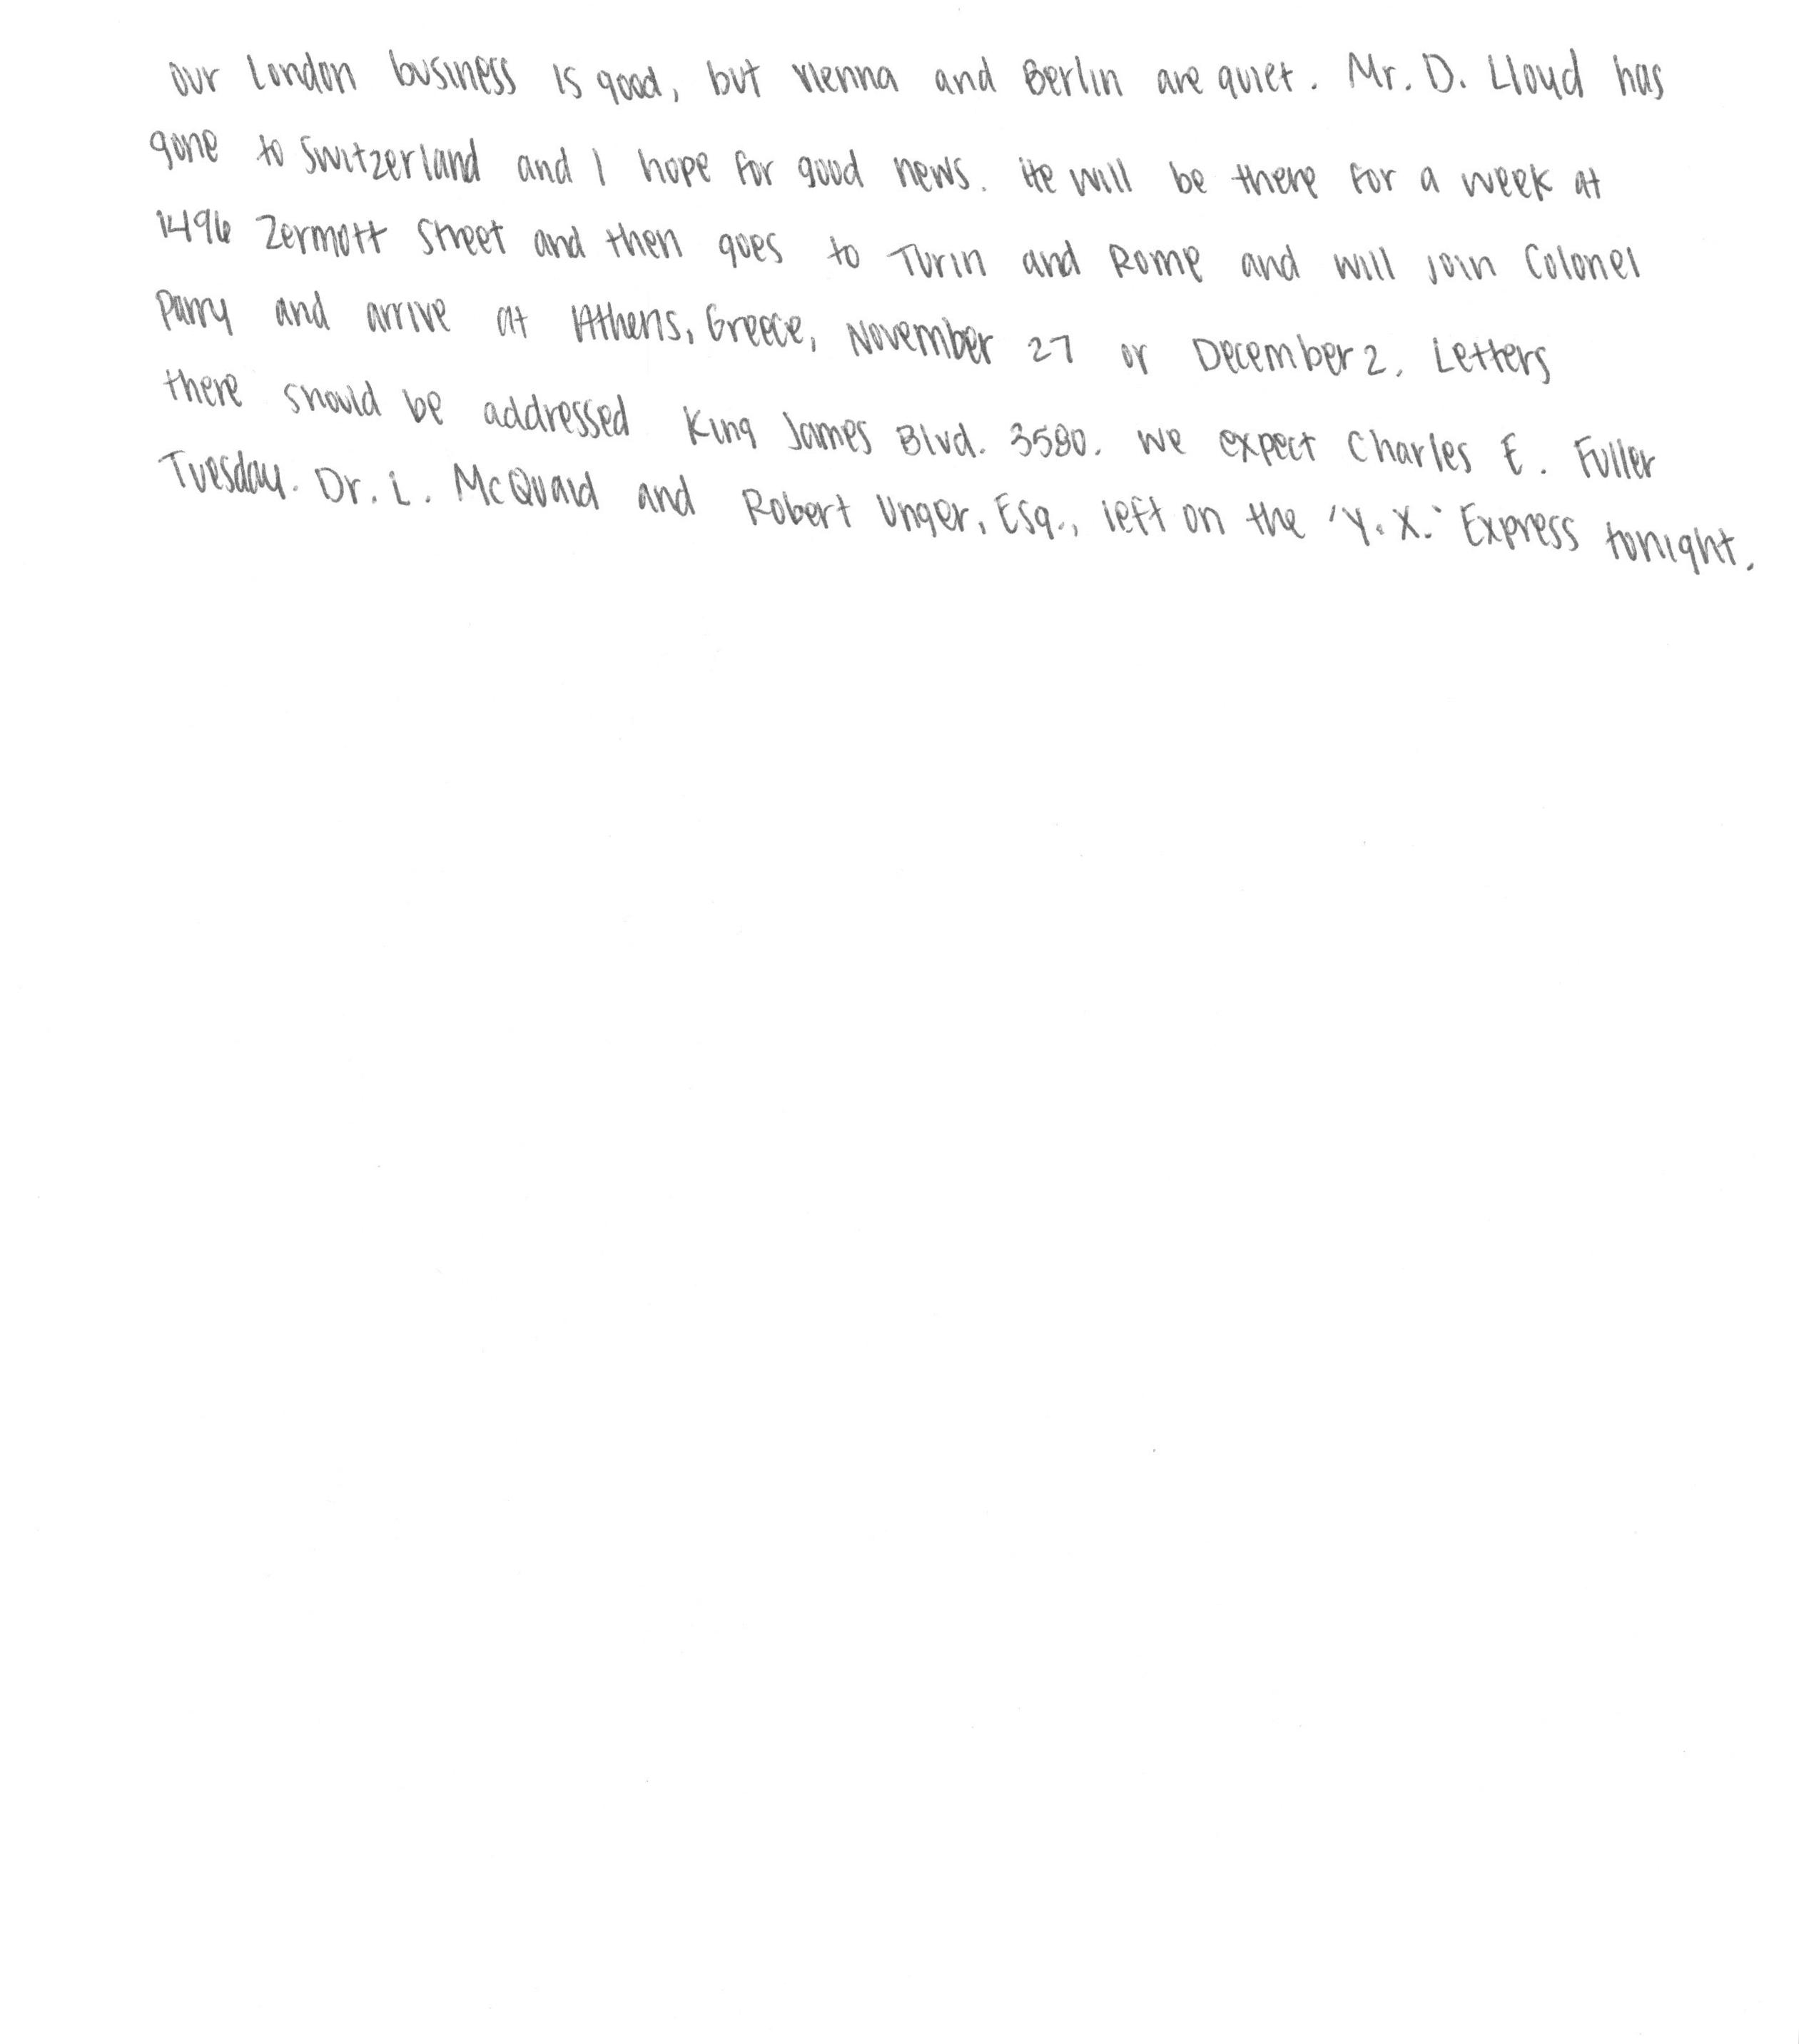 Our London business is good, but Vienna and Berlin are quiet. Mr. D. Lloyd has
gone to Switzerland and I hope for good news. He will be there for a week at
1496 Zermott Street and then goes to Turin and Rome and will join Colonel
Parry and arrive at Athens, Greece, November 27 or December 2. Letters
there should be addressed King James Blvd. 3580. We expect Charles E. Fuller
Tuesday. Dr. L. McQuaid and Robert Unger, Esq., left on the 'Y.X.' Express tonight.